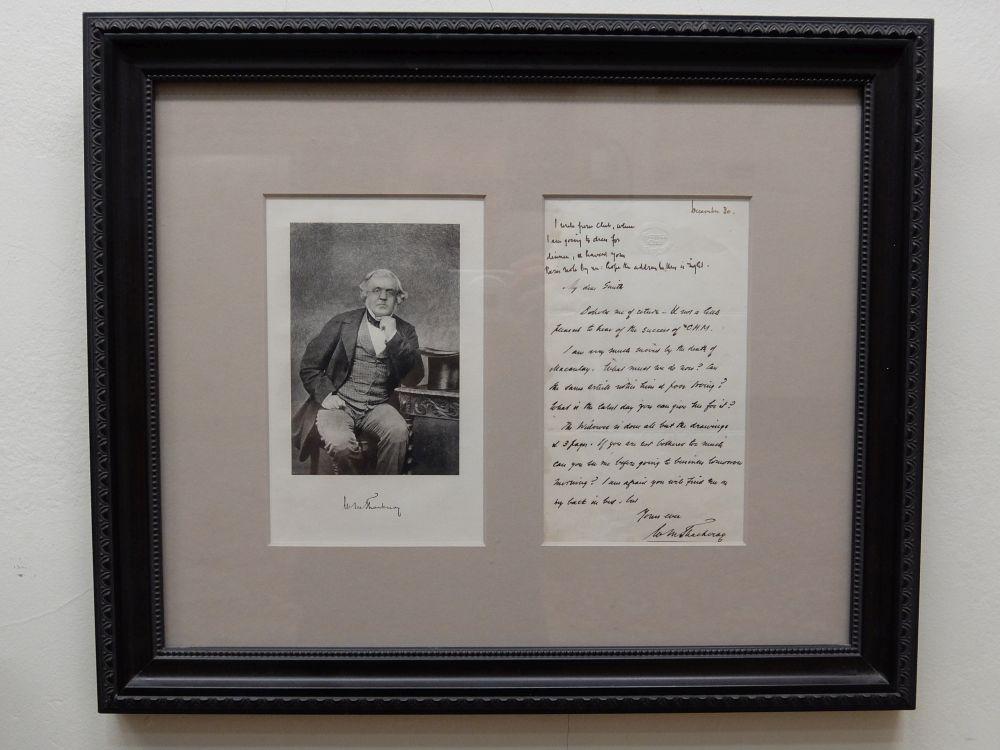 W M Thackeray
December 30.
I write from Club, where
I am going to dress for
dinner, & have
note by me: hope the address is right.
My dear Smith
me of course - & not a little
pleased to hear of the success of C.H.M.
I am very much moved by the death of
Macaulay. What must we do now? Can
the same article notice him & poor Irving?
What is the latest day you can give me for it?
The Widower is done all but the drawings
& 3 pages. If you are not bothered too much
can you see me before going to business tomorrow
morning? I am afraid you will find me on
my back in bed - but
Yours ever
W M Thackeray